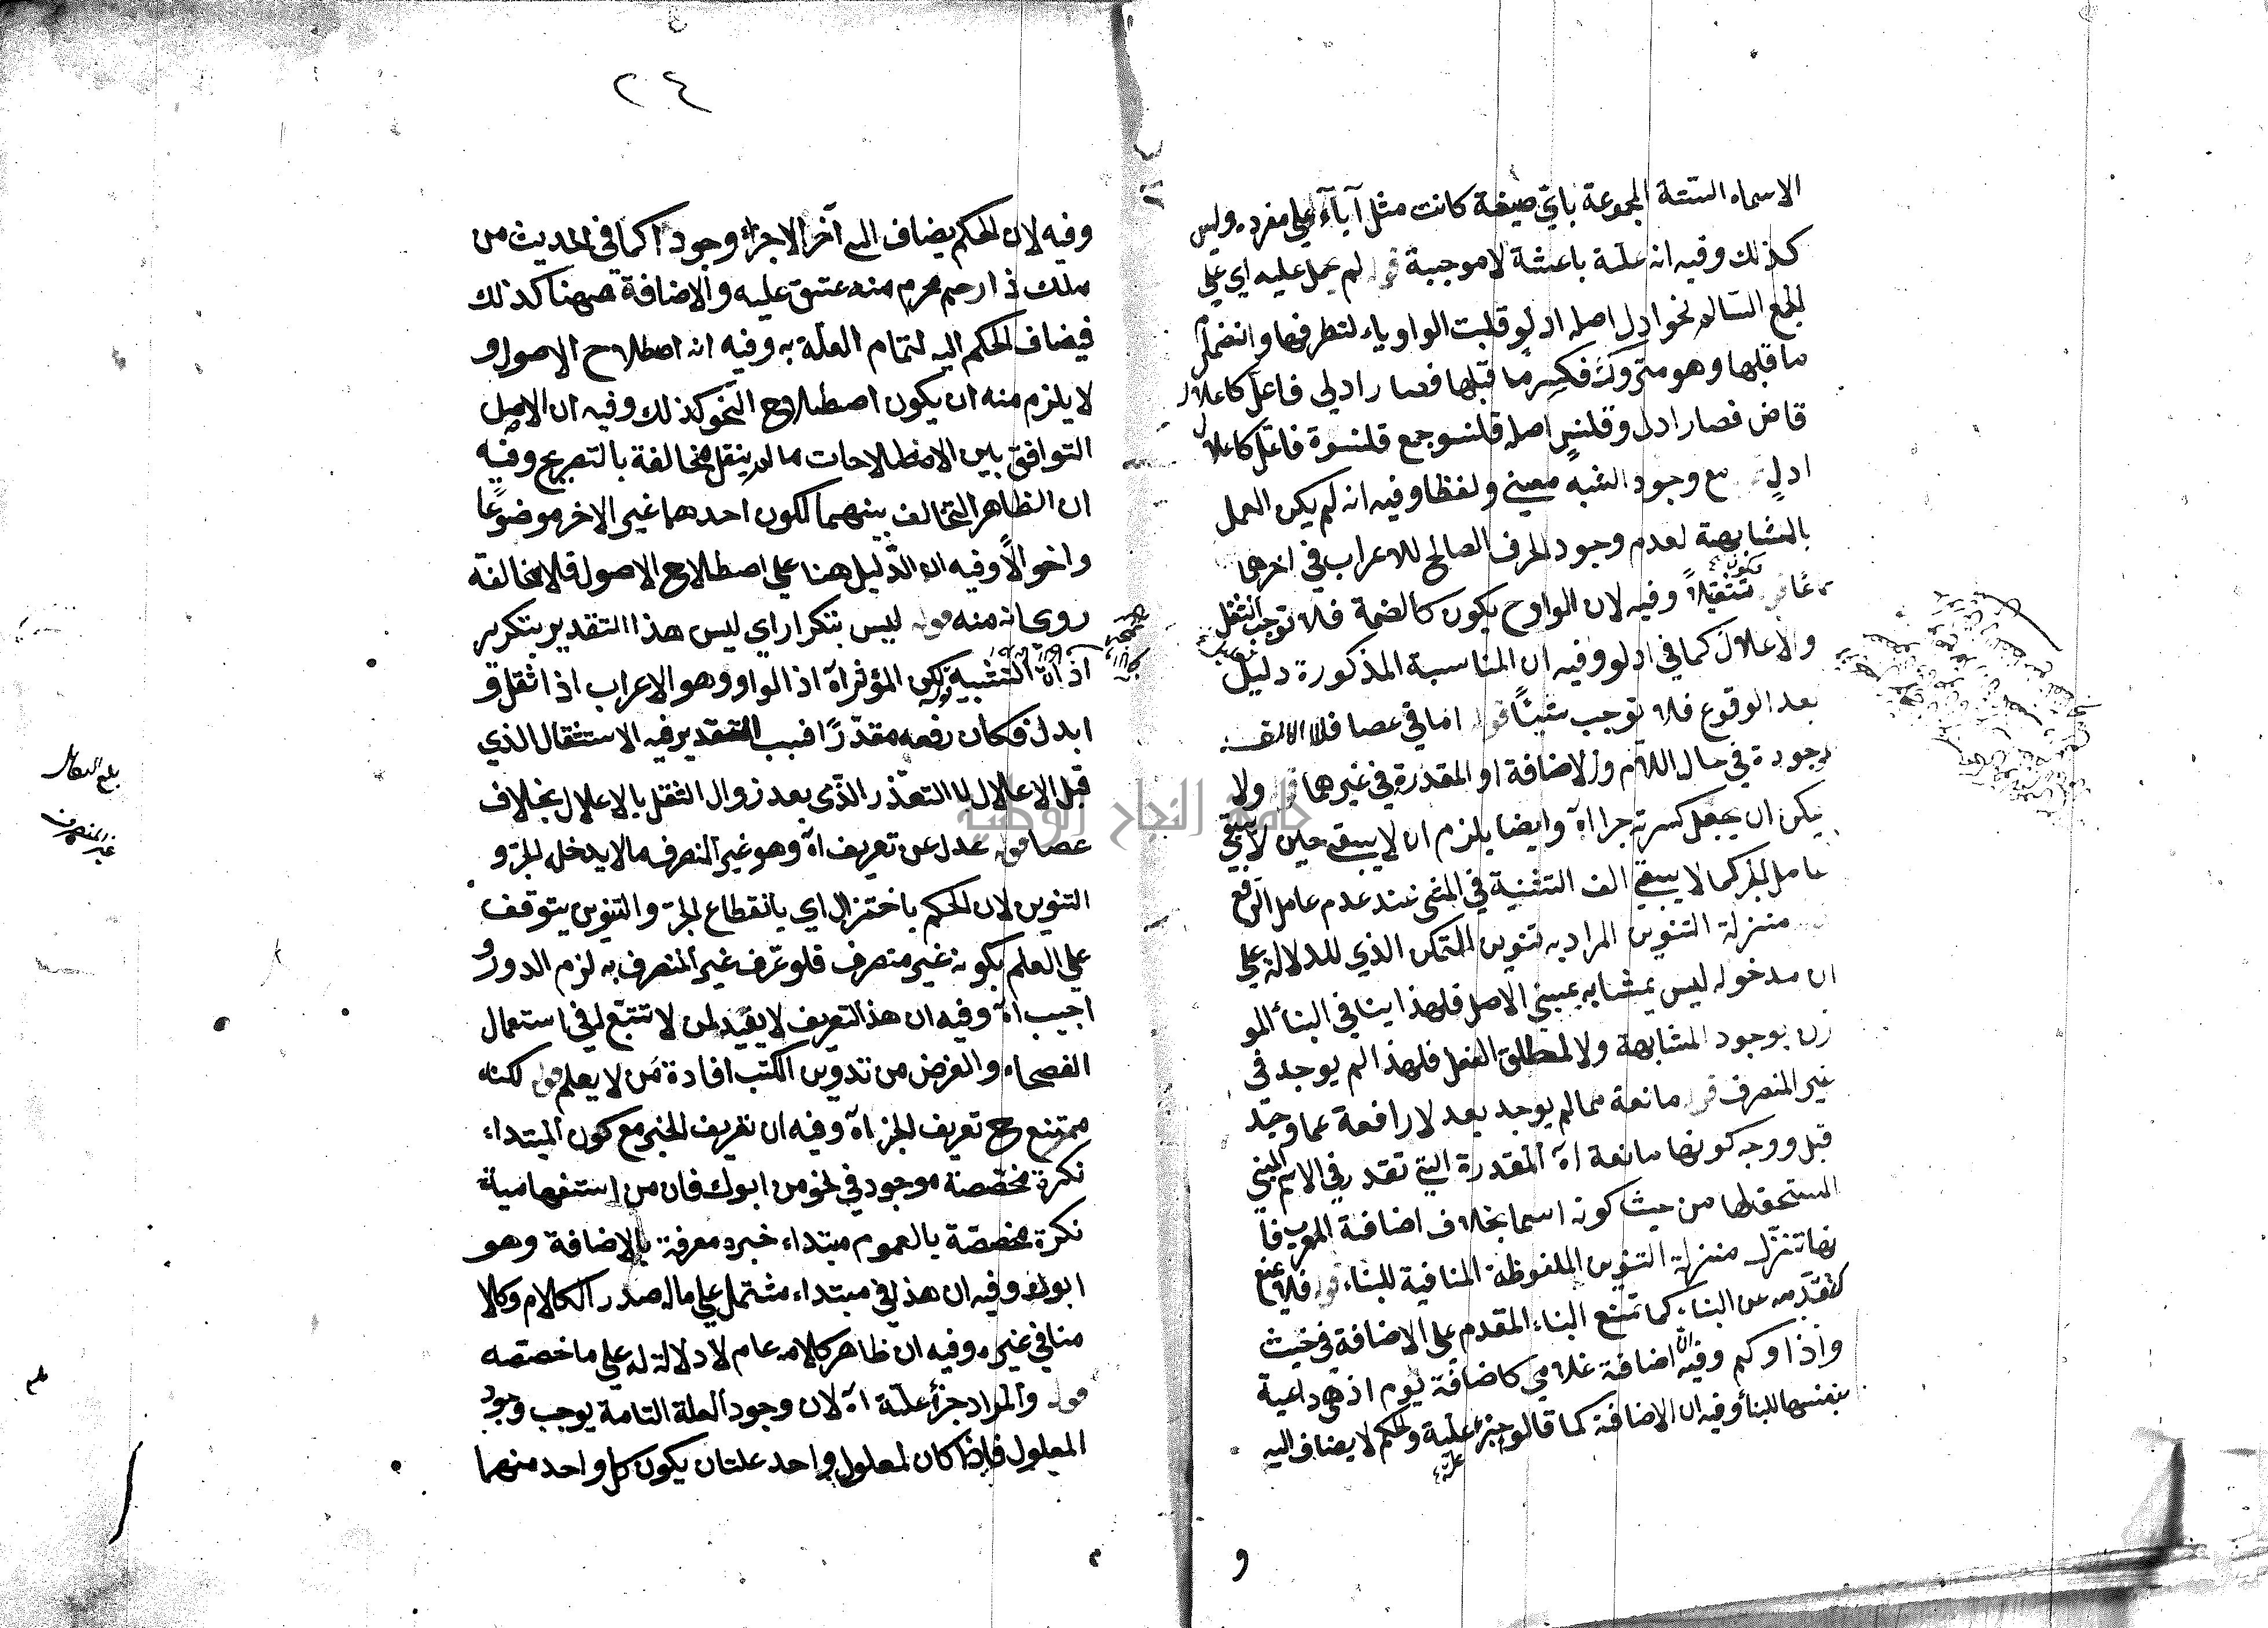 الاسماء الستة المجموعة باي صيغة كانت مثل آباء علي مفرده وليس
كذلك وفيه انه علة باعثة لا موجبة قوله لم يحمل عليه اي علي
الجمع السالم نحو ادل اصله ادلو قلبت الواو ياء لتطرفها وانضمام
ما قبلها وهو متروك فكسر ما قبلها فصار ادلي فاعل كاعلال
قاض فصار ادل وقلنس اصله قلنسو جمع قلنسوة فاعل كاعلال
ادل مع وجود الشبه معني ولفظا وفيه انه لم يكن العمل
بالمشابهة لعدم وجود الحرف الصالح للاعراب في اخرهما
تثقيلاً وفيه لان الواو ح يكون كالضمة فلا توجب الثقل
والاعلال كما في ادلو وفيه ان المناسبة المذكورة دليل
بعد الوقوع فلا توجب شيئاً قوله اما في عصا فلان الالف
موجودة في حال اللام والاضافة او المقدرة في غيرهما قوله ولا
يمكن ان يجعل كسرته جرا اه وايضا يلزم ان لا يبقي حين لا يبقي
عامل الجر كما لا يبقي الف التثنية في المثني عند عدم عامل الرفع
منزلة التنوين المراد به تنوين التمكن الذي للدلالة علي
ان مدخوله ليس بمشابه بمبني الاصل فلهذا ينافي البناء المو
ذن بوجود المشابهة ولا لمطلق الفعل فلهذا لم يوجد في
غير المنصرف قوله مانعة مما لم يوجد بعد لا رافعة عما وجد
قبل ووجه كونها مانعة اه المقدرة التي تقدر في الاسم المبني
المستحق لها من حيث كونه اسما بخلاف اضافة المعرب فا
نها تنزل منزلة التنوين الملفوظة المنافية للبناء قوله فلا تمنع
لتقدمه عن البناء كما تمنع البناء المقدم علي الاضافة في حيث
واذا وكم وفيه ان اضافة غلامي كاضافة يوم اذ هي داعية
بنفسها للبناء وفيه ان الاضافة كما قالوا جزء علة والحكم لا يضاف اليه
و
٢٤
وفيه لان الحكم يضاف الي آخر الاجزاء وجودا كما في الحديث من
ملك ذا رحم محرم منه عتق عليه والاضافة ههنا كذلك
فيضاف الحكم اليه لتمام العلة به وفيه انه اصطلاح الاصول و
لا يلزم منه ان يكون اصطلاح النحو كذلك وفيه ان الاصل
التوافق بين الاصطلاحات ما لم ينقل المخالفة بالتصريح وفيه
ان الظاهر التخالف بينهما لكون احدهما غير الاخر موضوعا
واخوالاً وفيه ان الدليل هنا علي اصطلاح الاصول فلا مخالفة
روحانه منه قوله ليس بتكرار اي ليس هذا التقدير بتكرير
لكن المؤثر اه اذ الواو وهو الاعراب اذا ثقل و
ابدل فكان رفعه مقدرًا فسبب التقدير فيه الاستثقال الذي
قبل الاعلال لا التعذر الذي بعد زوال الثقل بالاعلال بخلاف
عصا قوله عدل عن تعريف اه وهو غير المنصرف ما لا يدخله الجر و
التنوين لان الحكم باختزال اي بانقطاع الجر والتنوين يتوقف
علي العلم بكونه غير منصرف فلو عرف غير المنصرف به لزم الدور و
اجيب اه وفيه ان هذا التعريف لا يفيد لمن لا تتبع له في استعمال
الفصحاء والغرض من تدوين الكتب افادة من لا يعلم قوله لكنه
ممتنع ح تعريف الجز اه وفيه ان تعريف الخبر مع كون المبتداء
نكرة مخصصة موجود في نحو من ابوك فان من استفهامية
نكرة مخصصة بالعموم مبتداء خبره معرفة بالاضافة وهو
ابوك وفيه ان هذا في مبتداء مشتمل علي ماله صدر الكلام وكلا
منا في غيره وفيه ان ظاهر كلامه عام لا دلالة له علي ما خصصه
قوله والمراد جزأ علة اه لان وجود العلة التامة يوجب وجود
المعلول فاذا كان لمعلول واحد علتان يكون كل واحد منهما
بلغ
غير المنصرف